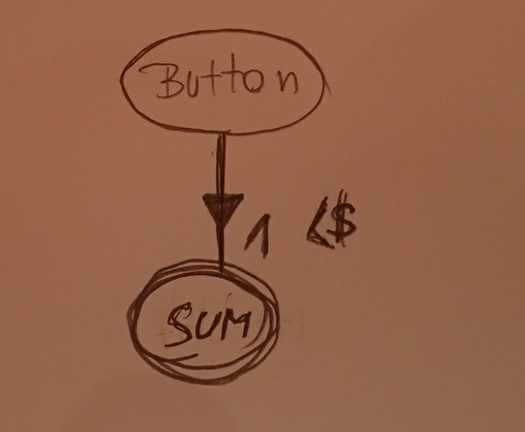 Button
1 <$
SUM